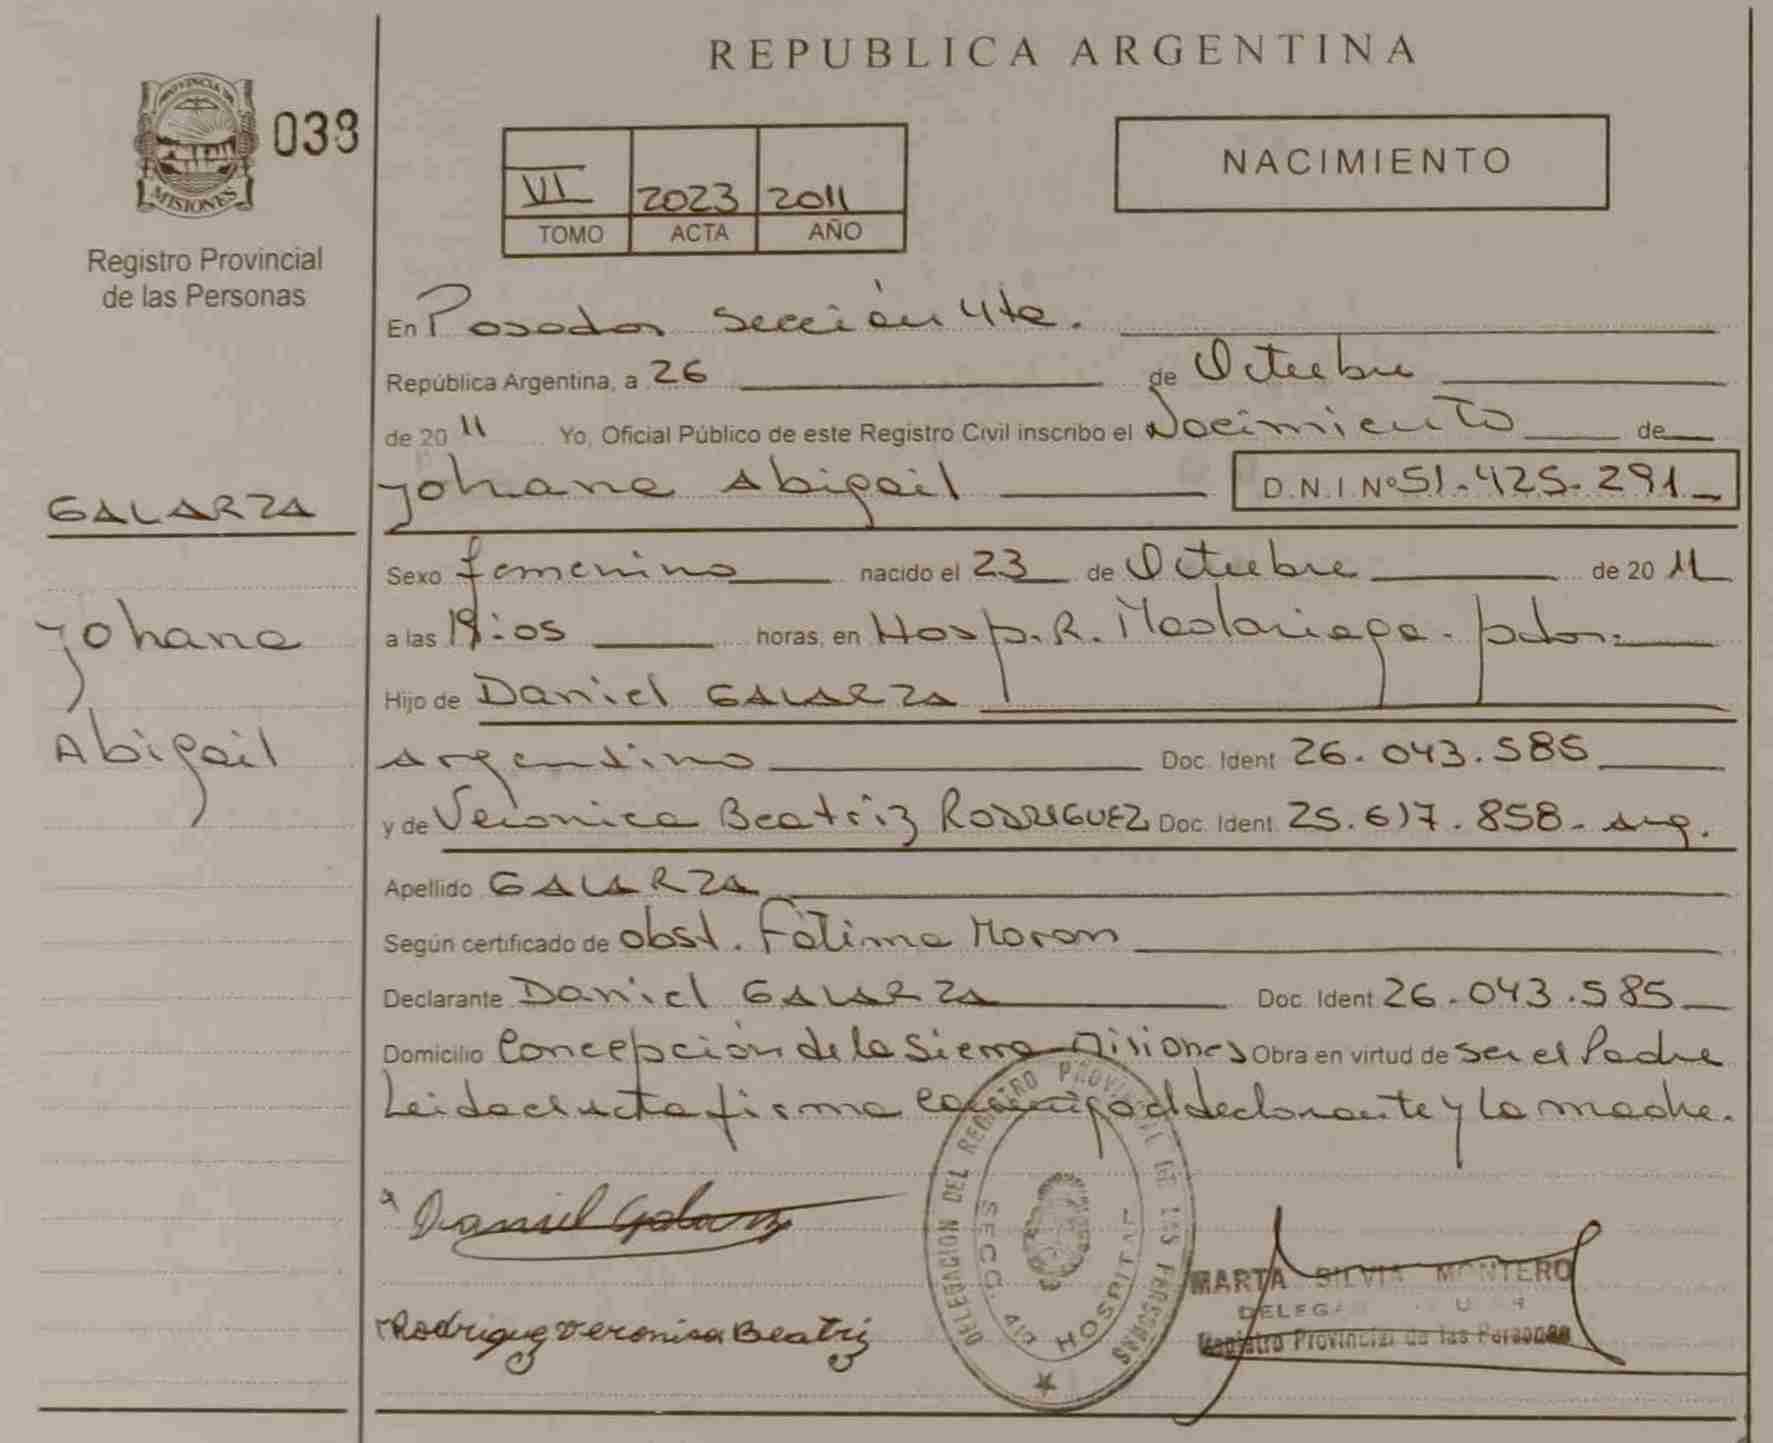 REPUBLICA ARGENTINA
PROVINCIA DE
MISIONES
038
Registro Provincial
de las Personas
VI 2023 2011
TOMO ACTA AÑO
NACIMIENTO
En Posadas Sección 4ta.
República Argentina, a 26 de Octubre
de 20 11 Yo, Oficial Público de este Registro Civil inscribo el Nacimiento de
Yohana Abigail D.N.I Nº 51.425.291
GALARZA
Yohana
Abigail
Sexo femenino nacido el 23 de Octubre de 20 11
a las 19:05 horas, en Hosp. R. Madariaga. pdas.
Hijo de Daniel GALARZA
Argentino Doc. Ident 26.043.585
y de Veronica Beatriz RODRIGUEZ Doc. Ident. 25.617.858 - Arg.
Apellido GALARZA
Según certificado de obst. Fátima Moron
Declarante Daniel GALARZA Doc. Ident 26.043.585
Domicilio Concepción de la Sierra Misiones Obra en virtud de ser el Padre
Leida el acta firma conmigo el declarante y la madre.
Daniel Galarza
Rodriguez Veronica Beatriz
DELEGACION DEL REGISTRO PROVINCIAL DE LAS PERSONAS
SECC. 4ta HOSPITAL
MARTA SILVIA MONTERO
Registro Provincial de las Personas